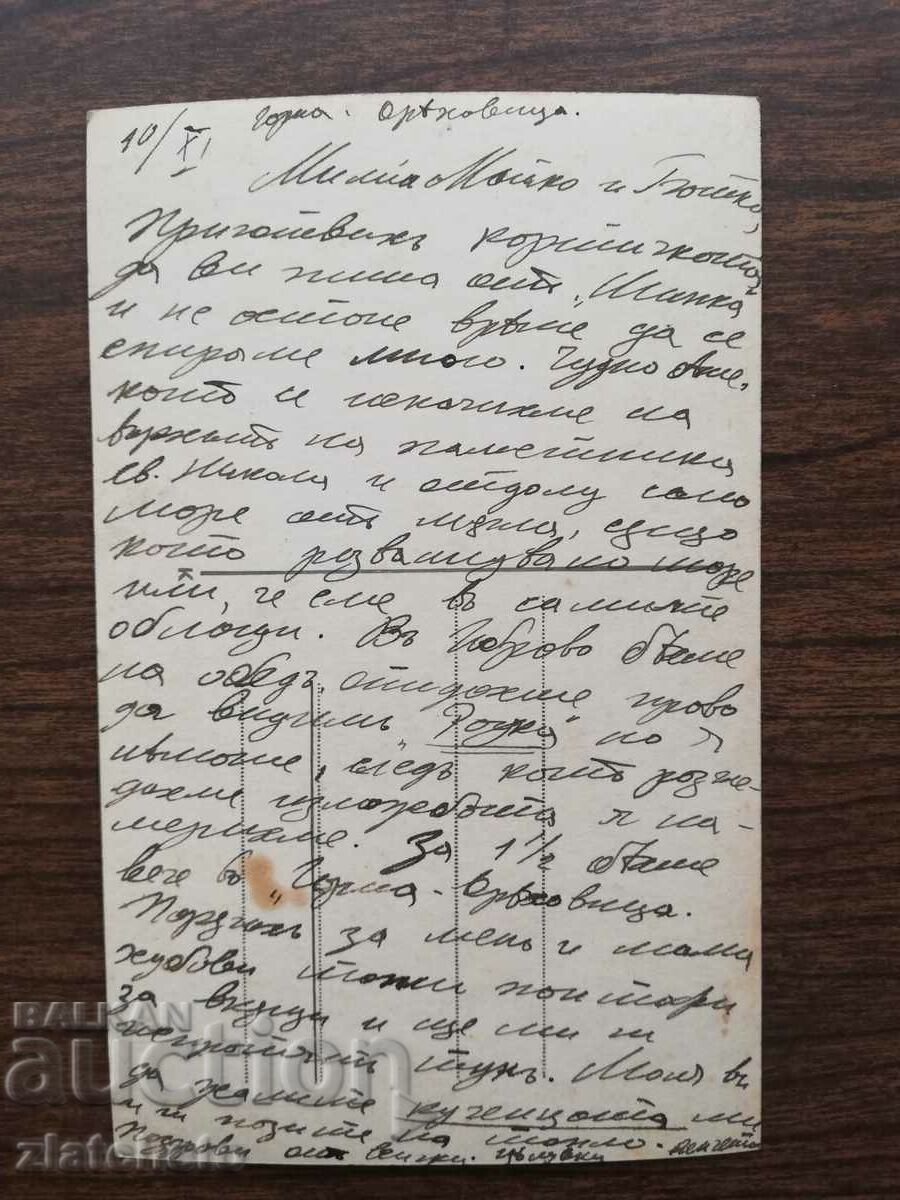 10/XI Горна - Орѣховица.
Мила Майко и Татко,
Приготвихъ картичката
да ви пиша отъ „Шипка"
и не остана врѣме да се
спираме много. Чудно бѣше,
като се покачихме на
върхътъ на паметника
св. Никола и отдолу само
море отъ мъгла, също
като развълнувано море
или, че сме въ самите
облаци. Въ Габрово бѣхме
на обѣдъ, отидохме право
да видимъ „Рачка" но я
нѣмаше, следъ като разгле-
дахме изложбата я на-
мерихме. За 1½ бѣхме
вече въ „Горна-Орѣховица.
Поръчахъ за менъ и мама
хубави
за вкъщи и ще ми ги
изпратятъ тукъ. Моля ви
да пазите кученцата ми
и ги пазите на топло.
Поздрави отъ всички. Цѣлувки
BALKAN
auction
zlatotehet0